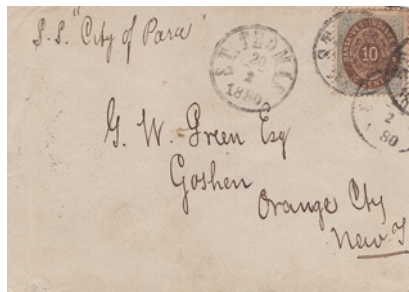 S.S. "City of Para"
ST. THOMAS
20
2
1880
10
CENTS
2
80
G. W. Green Esq
Goshen
Orange Cty
New